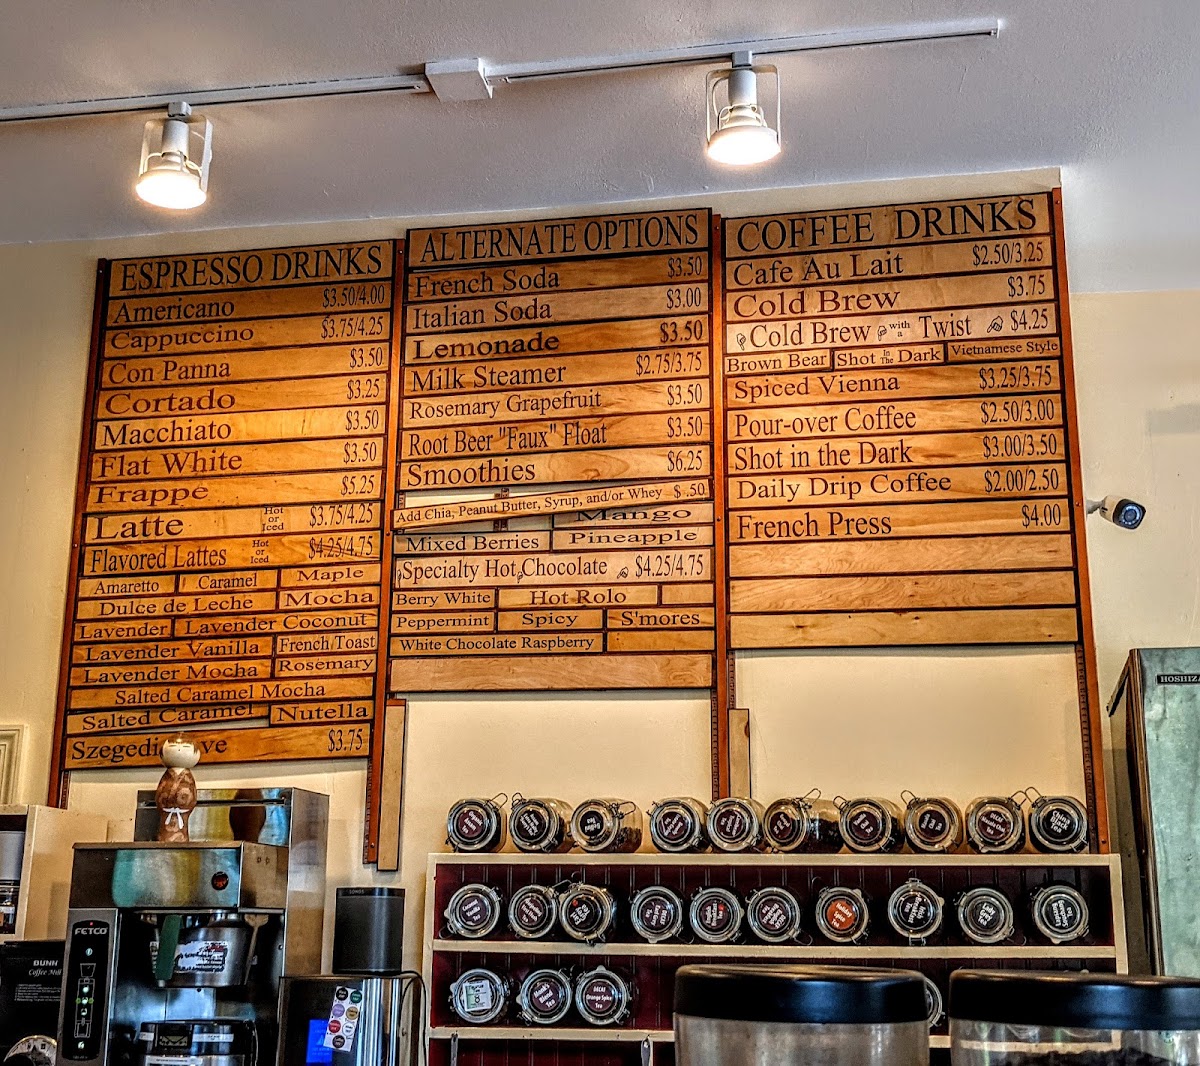 ESPRESSO DRINKS
Americano $3.50/4.00
Cappuccino $3.75/4.25
Con Panna $3.50
Cortado $3.25
Macchiato $3.50
Flat White $3.50
Frappe $5.25
Latte Hot or Iced $3.75/4.25
Flavored Lattes Hot or Iced $4.25/4.75
Amaretto Caramel Maple
Dulce de Leche Mocha
Lavender Lavender Coconut
Lavender Vanilla French Toast
Lavender Mocha Rosemary
Salted Caramel Mocha
Salted Caramel Nutella
$3.75
ALTERNATE OPTIONS
French Soda $3.50
Italian Soda $3.00
Lemonade $3.50
Milk Steamer $2.75/3.75
Rosemary Grapefruit $3.50
Root Beer "Faux" Float $3.50
Smoothies $6.25
Add Chia, Peanut Butter, Syrup, and/or Whey $ .50
Mango
Mixed Berries Pineapple
Specialty Hot Chocolate $4.25/4.75
Berry White Hot Rolo
Peppermint Spicy S'mores
White Chocolate Raspberry
COFFEE DRINKS
Cafe Au Lait $2.50/3.25
Cold Brew $3.75
Cold Brew with a Twist $4.25
Brown Bear Shot In The Dark Vietnamese Style
Spiced Vienna $3.25/3.75
Pour-over Coffee $2.50/3.00
Shot in the Dark $3.00/3.50
Daily Drip Coffee $2.00/2.50
French Press $4.00
HOSHIZA
China Black Tea
DECAF Orange Spice Tea
FETCO
BUNN
Coffee Mill
SONOS